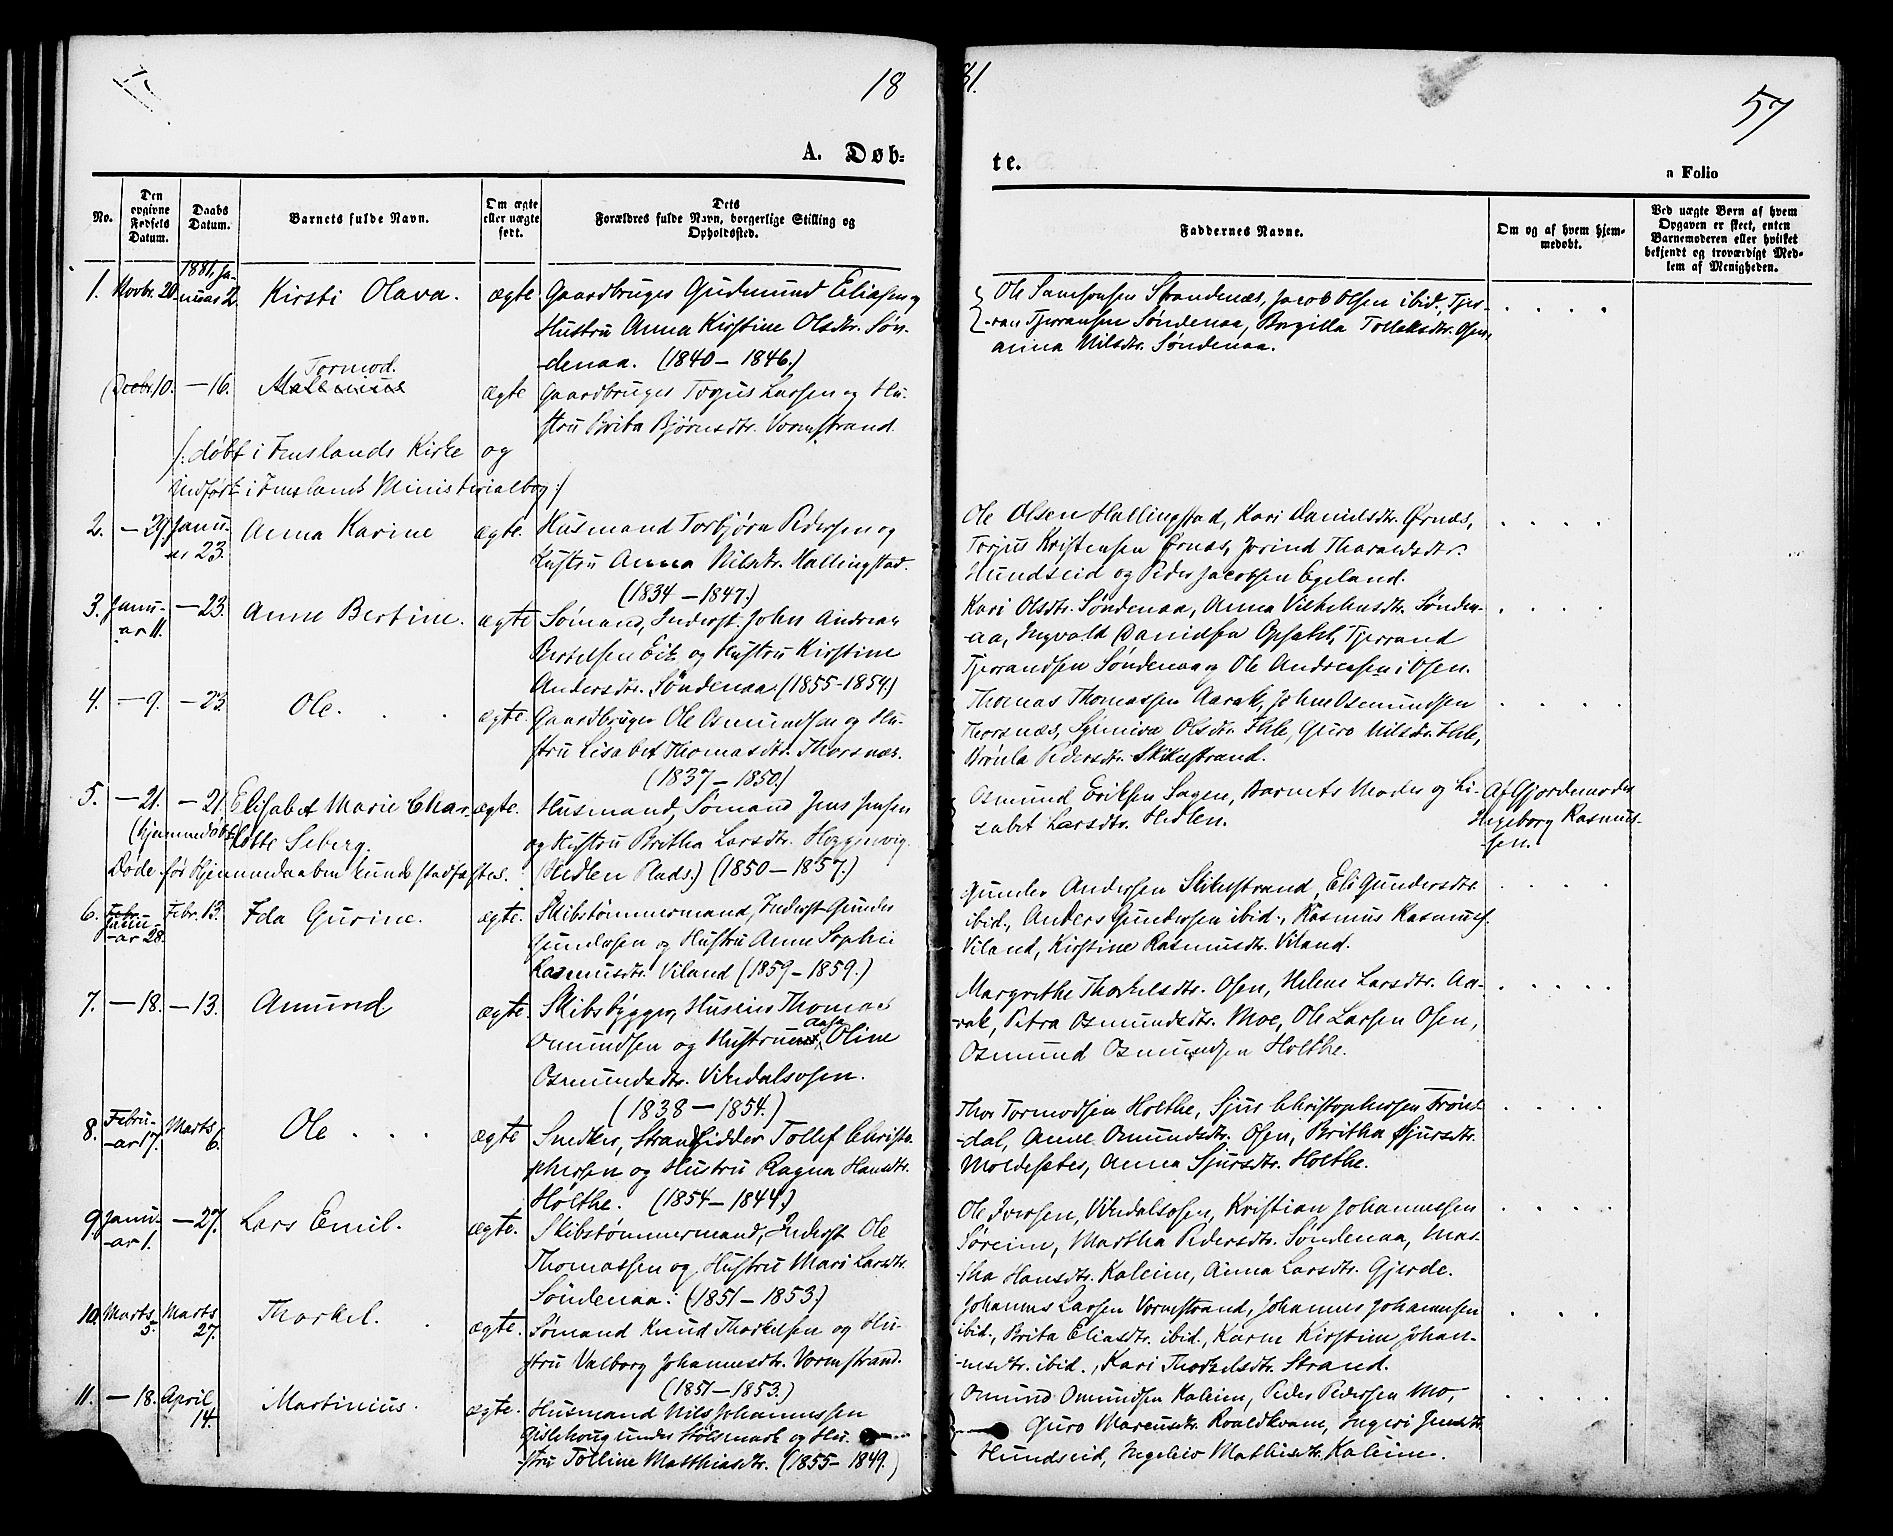 18
81.
57
A. Døb-
te.
a Folio
No.
Den opgivne Fødsels Datum.
Daabs Datum.
Barnets fulde Navn.
Om ægte eller uægte født.
Dets Forældres fulde Navn, borgerlige Stilling og Opholdssted.
Faddernes Navne.
Om og af hvem hjemmedøbt.
Ved uægte Børn af hvem Opgaven er skeet, enten Barnemoderen eller hvilket bekjendt og troværdigt Medlem af Menigheden.
1. Novbr. 20. 1881, Januar 2. Kirsti Olava. ægte
Gaardbruger Gudmund Eliasen og
Hustru Anna Kirstine Olsdtr. Søn-
denaa. (1840 – 1846.)
Ole Samsonsen Strandenæs, Jacob Olsen ibid., Tjer-
ran Tjerransen Søndenaa, Birgitta Tollaksdtr. Osen,
Anna Nilsdtr. Søndenaa.
(Decbr. 10. – 16. Tormod. ægte
Gaardbruger Torjus Larsen og Hu-
stru Brita Bjørnsdtr. Vormstrand.
/: døbt i Imslands Kirke og
indført i Imslands Ministerialbog :/
2. – 29. Janu-
ar 23. Anna Karine ægte.
Husmand Torbjørn Pedersen og
Hustru Anna Nilsdtr. Hallingstad.
(1834 – 1847.)
Ole Olsen Hallingstad, Kari Danielsdtr. Ørnæs,
Torjus Kristensen Ørnæs, Jorind Tharaldsdtr.
Hundseid og Peder Jacobsen Egeland.
3. Janu-
ar 11. – 23. Anne Bertine. ægte
Sømand, Inderst John Andreas
Bertelsen Eik og Hustru Kirstine
Andersdtr. Søndenaa. (1855-1854.)
Kari Olsdtr. Søndenaa, Anna Vilhelmsdtr. Sønden-
aa, Ingvald Danielsen Opsahl, Tjerrand
Tjerrandsen Søndenaa og Ole Andreasen i Osen.
4. – 9. – 23. Ole. ægte.
Gaardbruger Ole Osmundsen og Hu-
stru Lisabet Thomasdtr. Thorsnæs.
(1837 – 1850.)
Thomas Thomassen Aarak, John Osmundsen
Thorsnæs, Synniva Olsdtr. Ihle, Guro Nilsdtr. Ihle,
Brønla Pedersdtr. Skikestrand.
5. – 21. – 21. Elisabet Marie Char- ægte.
(hjemmedøbt) lotte Seberg.
Døde før Hjemmedaaben kunde stadfæstes.
Husmand, Sømand Jens Jensen
og Hustru Britha Larsdtr. Heggervig.
(Hedlen Plads.) (1850 – 1857.)
Osmund Eriksen Sagen, Barnets Moder og Li-
sabet Larsdtr. Hedlen.
Af Gjordemoder
Ingeborg Rasmus-
sen.
6. Janu-
ar 28. Febr. 13. Ida Gurine. ægte.
Skibstømmermand, Inderst Gunder
Gundersen og Hustru Anne Sophie
Rasmusdtr. Viland (1859 – 1859.)
Gunder Andersen Skikestrand, Eli Gundersdtr.
ibid., Anders Gundersen ibid., Rasmus Rasmus.
Viland, Kirstine Rasmusdtr. Viland.
7. – 18. – 13. Amund ægte.
Skibsbygger, Huseier Thomas
Omundsen og Hustru Aasa Oline
Osmundsdtr. Vikedalsosen.
(1838 – 1854.)
Margrethe Thorkelsdtr. Osen, Helene Larsdtr. Aa-
rak, Petra Osmundsdtr. Moe, Ole Larsen Osen,
Osmund Osmundsen Holthe.
8. Febru-
ar 17. Marts
6. Ole ægte
Snedker, Strandsidder Tollef Christo-
phersen og Hustru Ragna Hansdtr.
Holthe. (1854 – 1844.)
Thor Tormodsen Holthe, Sjur Christophersen Frønd-
dal, Anne Omundsdtr. Osen, Britha Sjursdtr.
Moldesætes, Anna Sjursdtr. Holthe.
9. Janu-
ar 1. – 27. Lars Emil. ægte.
Skibstømmermand, Inderst Ole
Thomassen og Hustru Mari Larsdtr.
Søndenaa. (1851 – 1853.)
Ole Iversen, Vikedalsosen, Kristian Johannessen
Søreim, Martha Pedersdtr. Søndenaa, Mar-
tha Hansdtr. Kaleim, Anna Larsdtr. Gjerde.
10. Marts
5. Marts
27. Thorkel. ægte.
Sømand Knud Thorkelsen og Hu-
stru Valborg Johannesdtr. Vormstrand.
(1851 – 1853.)
Johannes Larsen Vormestrand, Johannes Johannesen
ibid., Brita Eliasdtr. ibid., Karen Kirstine Johan-
nesdtr. ibid., Kari Thorkelsdtr. Strand.
11. – 18. April
14. Martinius. ægte.
Husmand Nils Johannessen
Gislehoug under Stølsmark og Hu-
stru Tolline Matthiasdtr. (1855 – 1849.)
Omund Omundsen Kaleim, Peder Pedersen Mo,
Guro Marcusdtr. Roaldkvam, Ingeri Jensdtr.
Hundseid, Ingeleiv Mathisdtr. Kaleim.